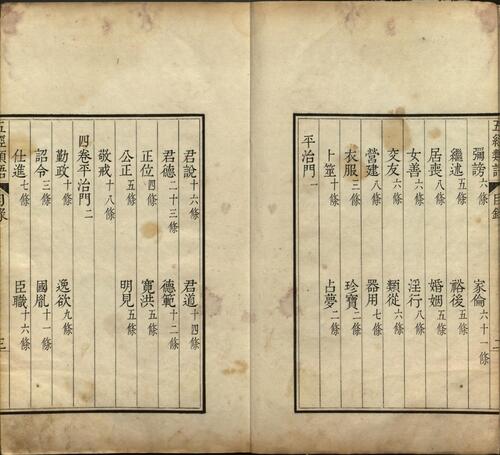 五經類語 目錄 二
彌謗六條 家倫六十一條
繼述五條 裕後五條
居喪八條 婚姻五條
女善六條 淫行八條
交友六條 類從六條
營建八條 器用七條
衣服三條 珍寶二條
卜筮十條 占夢二條
平治門一
君說十六條 君道十四條
君德二十三條 德範十二條
正位四條 寬洪五條
公正五條 明見五條
敬戒十八條
四卷平治門二
勤政十條 逸欲九條
詔令三條 國胤十一條
仕進七條 臣職十六條
五經類語 目錄 三